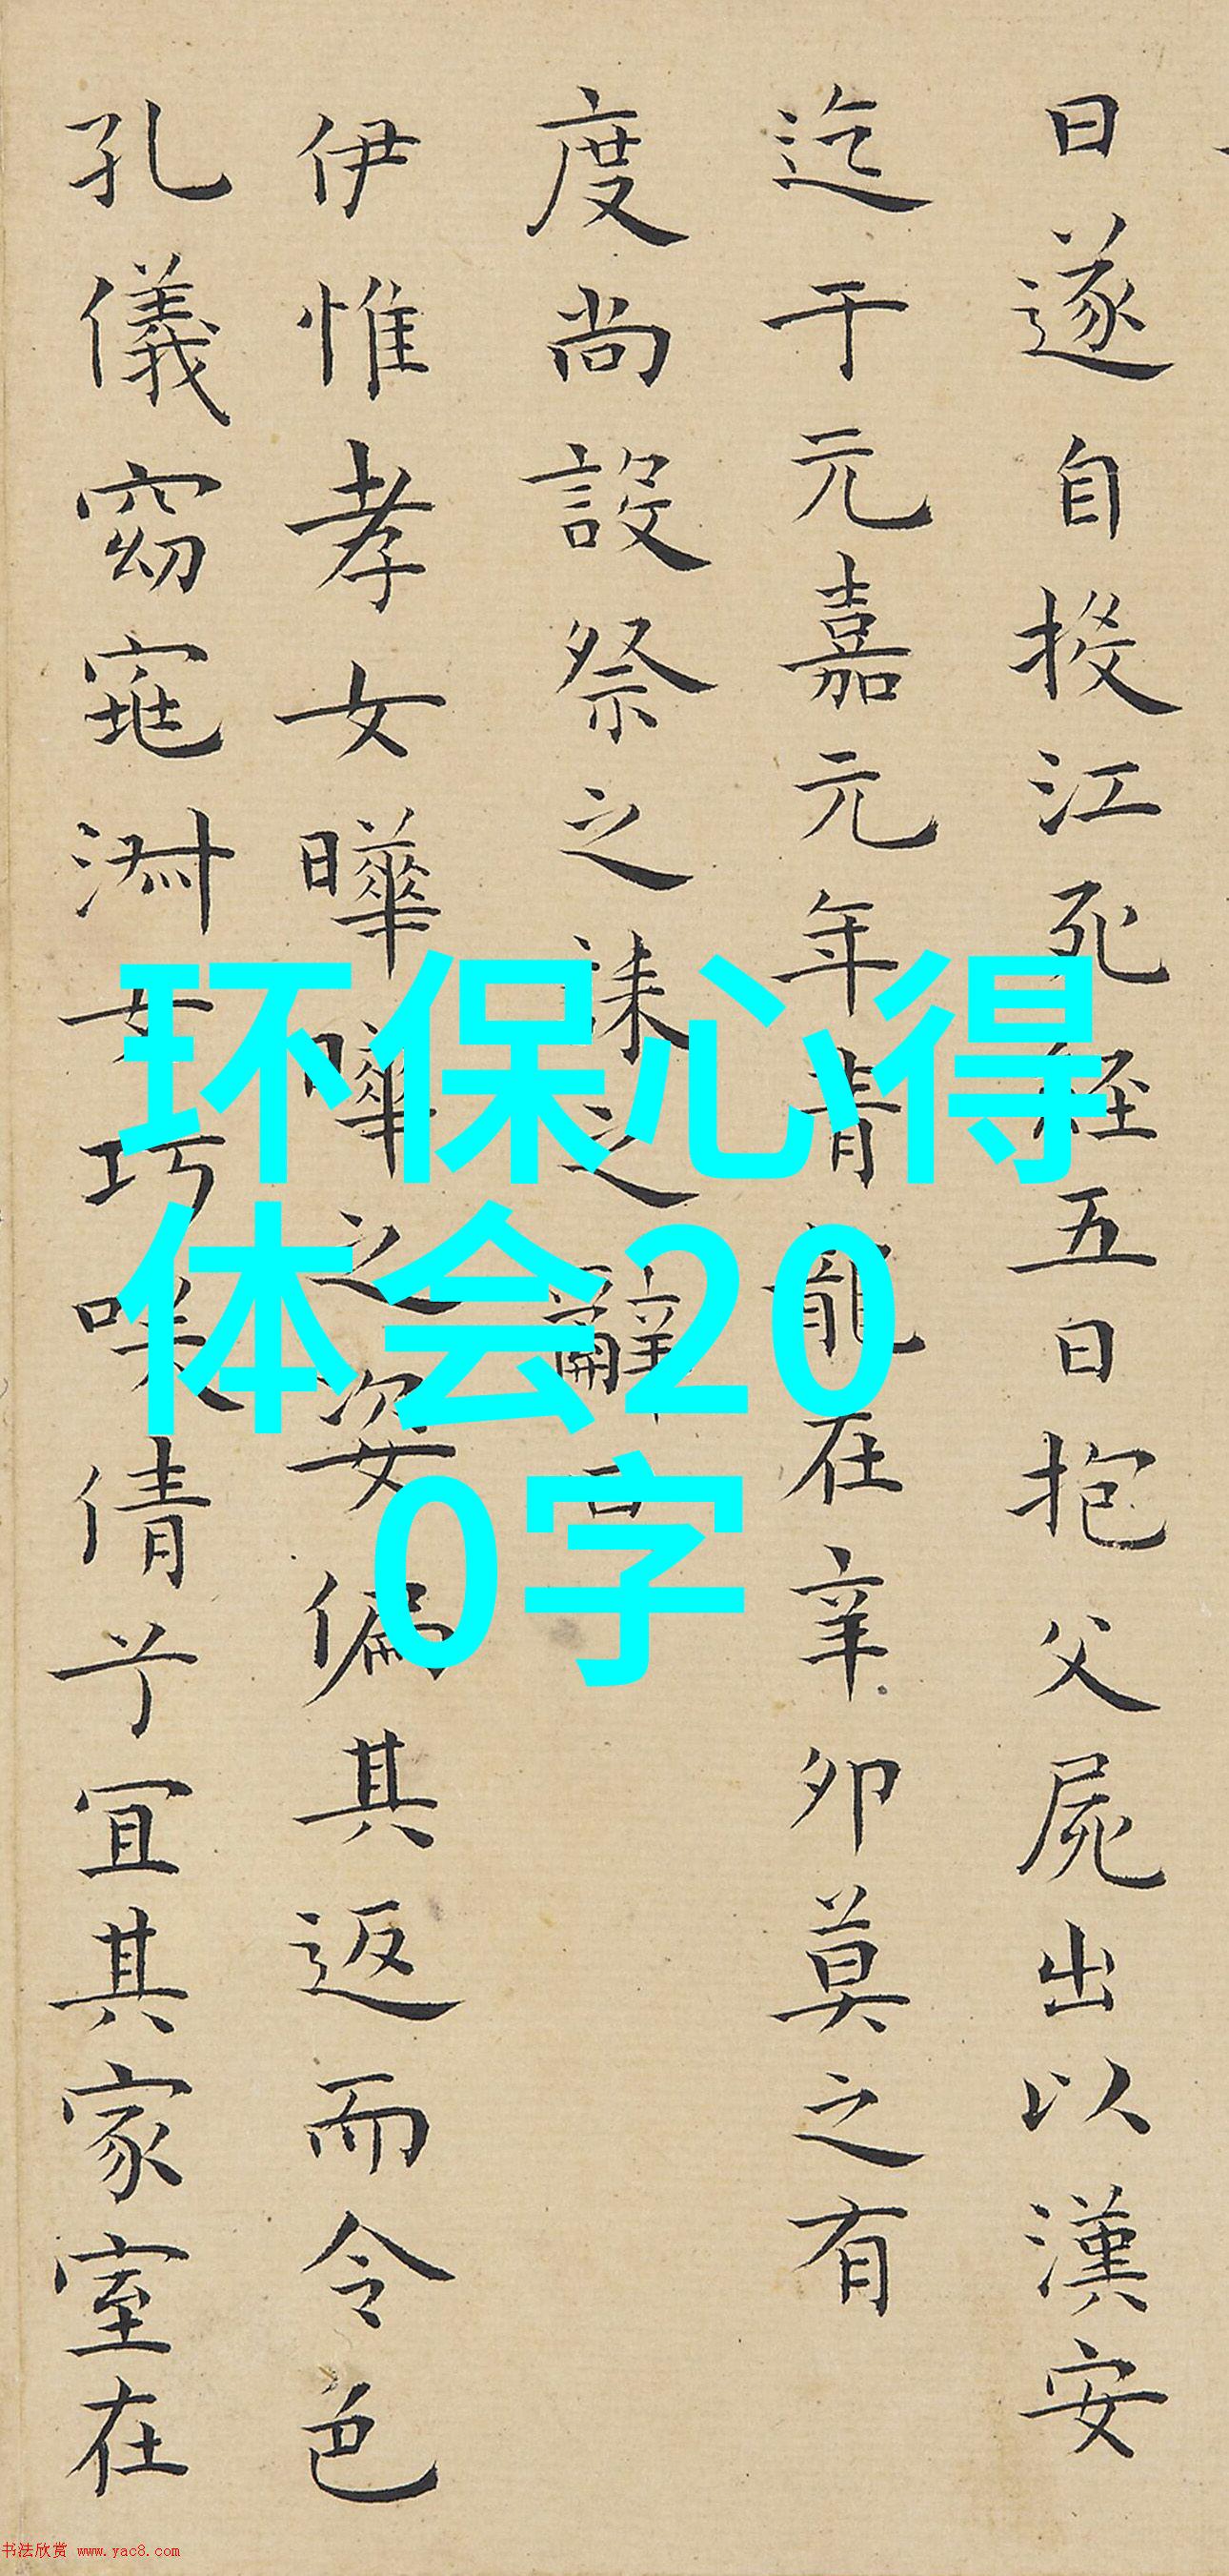 日遂自投江死經五日抱父屍出以漢安
迄于元嘉元年青龍在辛卯莫之有
度尚設祭之誄之辭曰
伊惟孝女曄曄之姿偏其返而令色
孔儀窈窕淑女巧咲倩兮宜其家室在
环保心得
体会20
0字
书法欣赏 www.yac8.com